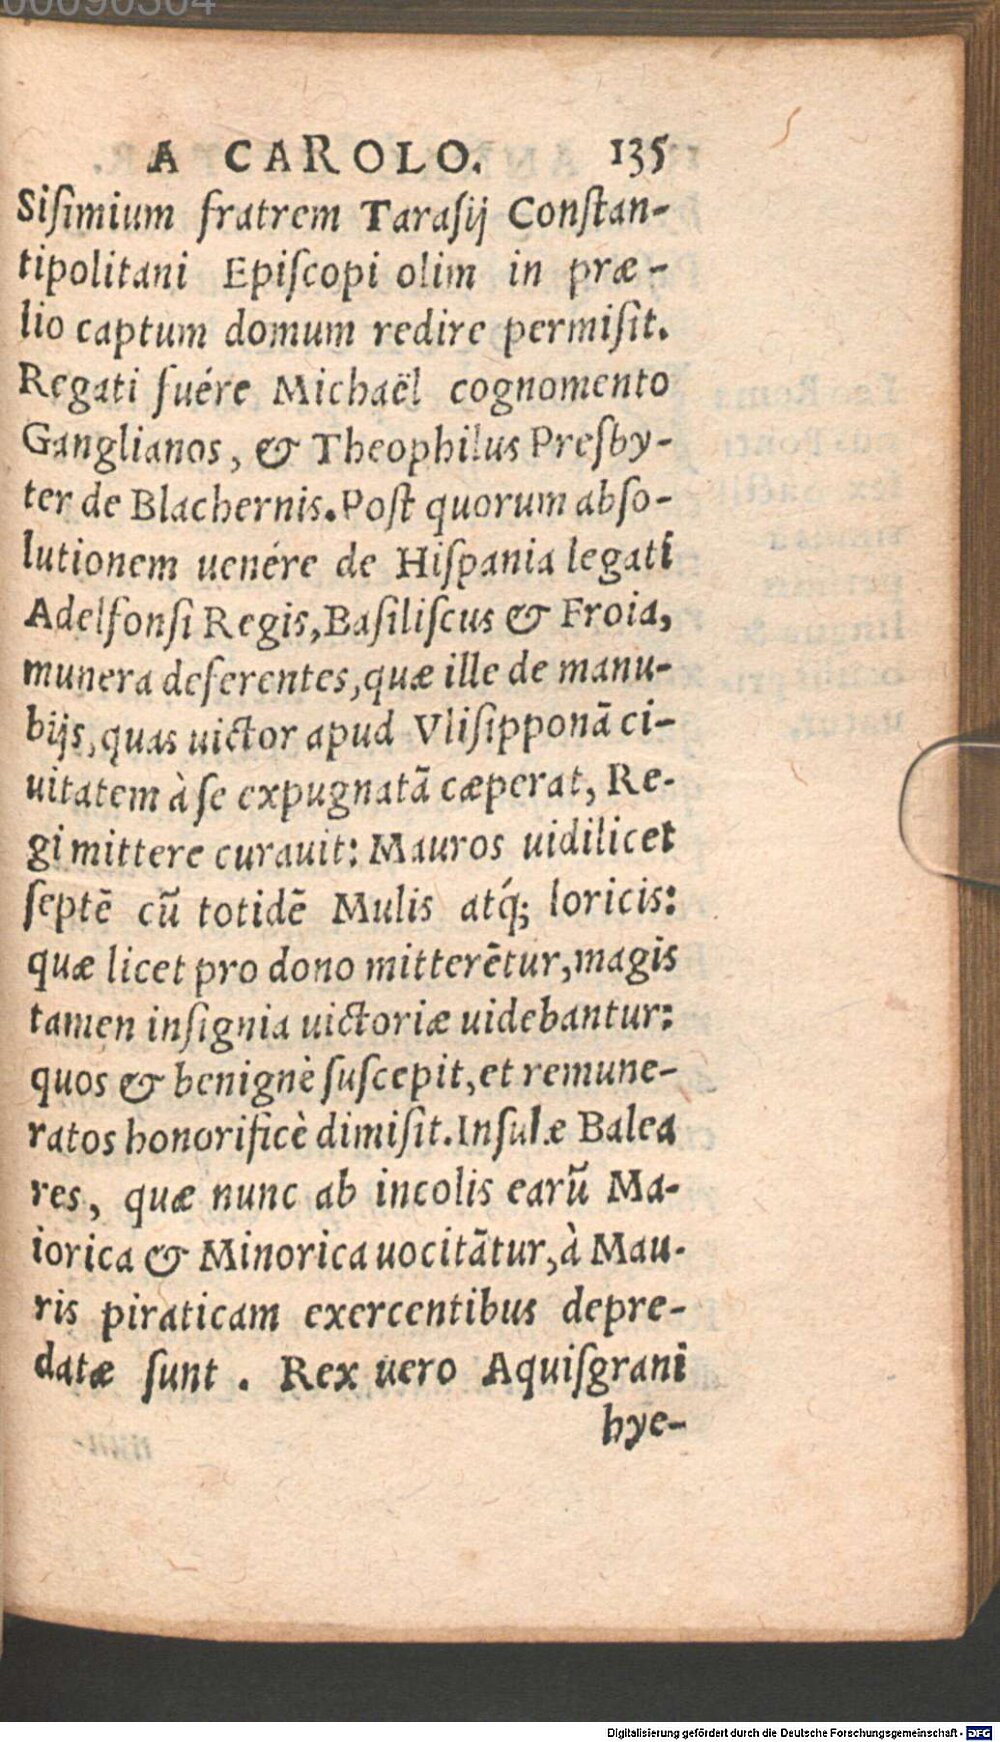 00090304
A CAROLO. 135
Siſimium fratrem Taraſij Conſtan-
tipolitani Epiſcopi olim in præ-
lio captum domum redire permiſit.
Regati fuére Michaël cognomento
Ganglianos, & Theophilus Preſby-
ter de Blachernis. Poſt quorum abſo-
lutionem uenére de Hiſpania legati
Adelfonſi Regis, Baſiliſcus & Froia,
munera deferentes, quæ ille de manu-
bijs, quas uictor apud Vliſipponā ci-
uitatem à ſe expugnatā cæperat, Re-
gi mittere curauit: Mauros uidilicet
ſeptē cū totidē Mulis atq́; loricis:
quæ licet pro dono mitterētur, magis
tamen inſignia uictoriæ uidebantur:
quos & benignè ſuſcepit, et remune-
ratos honorificè dimiſit. Inſulæ Balea
res, quæ nunc ab incolis earū Ma-
iorica & Minorica uocitātur, à Mau-
ris piraticam exercentibus depre-
datæ ſunt. Rex uero Aquiſgrani
hye-
Digitalisierung gefördert durch die Deutsche Forschungsgemeinschaft - DFG